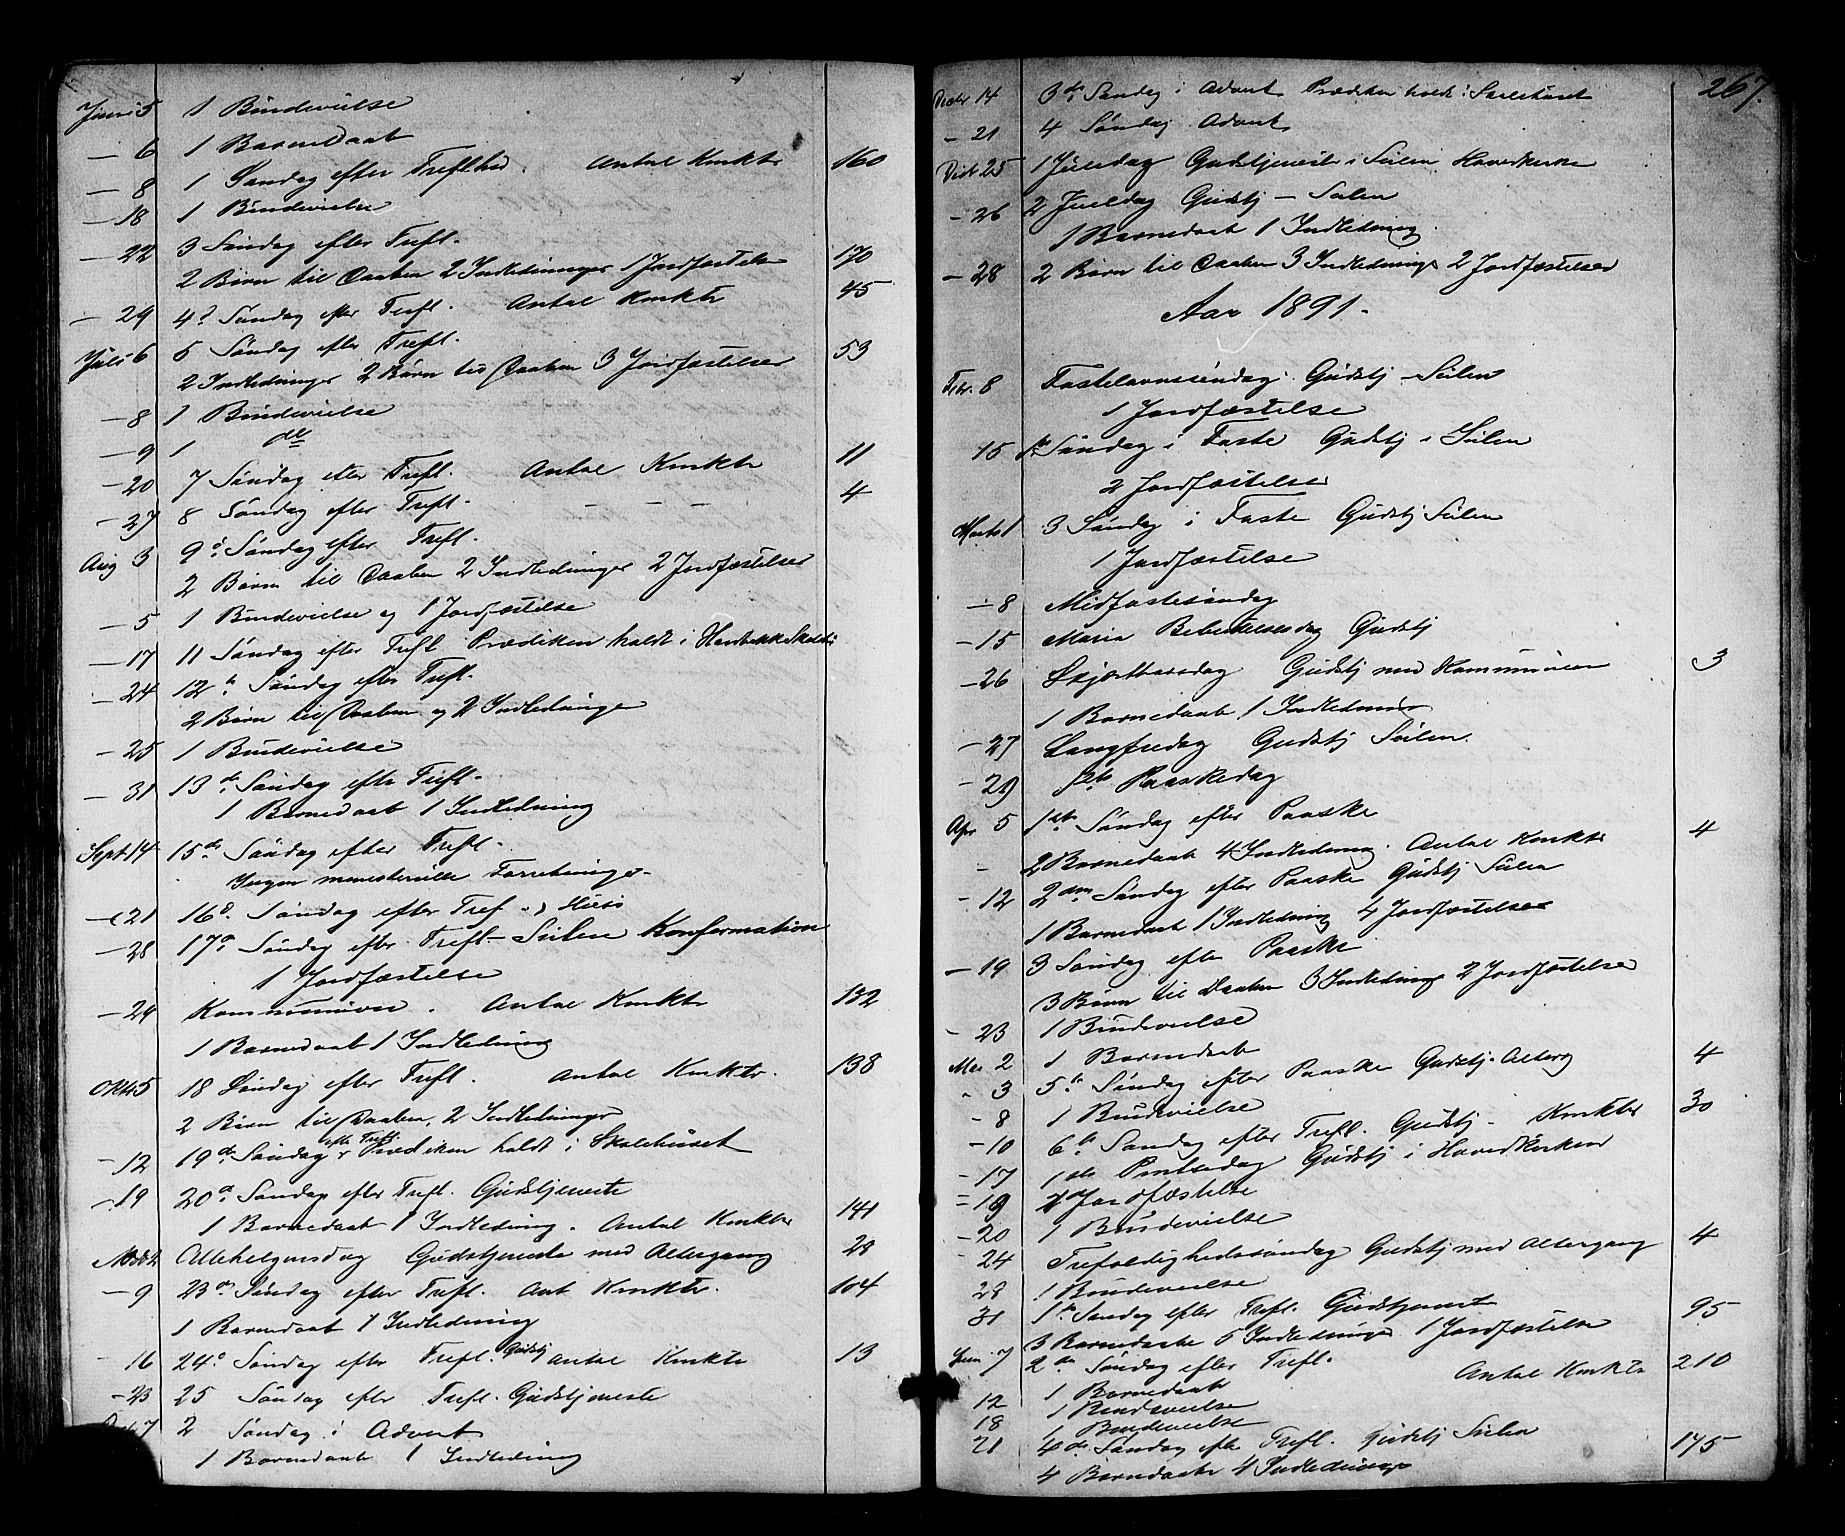 Juni 5 1 Brudevielse
— 6 1 Barnedaab
— 8 1 Søndag efter Treflhd. Antal Kmktr 160
— 18 1 Brudevielse
— 22 3 Søndag efter Trefl. 170
2 Børn til Daaben 2 Indledninger 1 Jordfæstelse
— 29 4d Søndag efter Trefl. Antal Kmktr 45
Juli 6 5 Søndag efter Trefl. 53
2 Indledninger 2 Børn til Daaben 3 Jordfæstelser
— 8 1 Brudevielse
— 9 1 do
— 20 7 Søndag efter Trefl. Antal Kmktr 11
— 27 8 Søndag efter Trefl. — — — 4
Aug 3 9d. Søndag efter Trefl.
2 Børn til Daaben 2 Indledninger 2 Jordfæstelser
— 5 1 Brudevielse og 1 Jordfæstelse
— 17 11 Søndag efter Trefl Prædiken holdt i
— 24 12te Søndag efter Trefl.
2 Børn til Daaben og 2 Indledninge
— 25 1 Brudevielse
— 31 13de Søndag efter Trefl.
1 Barnedaab 1 Indledning
Sept 14 15de Søndag efter Trefl.
Ingen ministerielle Forretninger
— 21 16d. Søndag efter Tref
— 28 17d. Søndag efter Trefl — Sulen Konformation
1 Jordfæstelse
— 29 Kommunion. Antal Kmktr 132
1 Barnedaab 1 Indledning
Oktb 5 18 Søndag efter Trefl. Antal Kmktr. 138
2 Børn til Daaben, 2 Indledninger
— 12 19de Søndag efter Trefl Prædiken holdt i Skolehuset
— 19 20d. Søndag efter Trefl. Gudstjeneste
1 Barnedaab 1 Indledning. Antal Kmktr 141
Novb 2 Allehelgensdag Gudstjeneste med Altergang 29
— 9 23de Søndag efter Trefl. Ant Kmktr. 104
1 Barnedaab 1 Indledning
— 16 24d Søndag efter Trefl. Gudstj Antal Kmktr 13
— 23 25 Søndag efter Trefl. Gudstjeneste
7 2 Søndag i Advent
1 Barnedaab 1 Indledning
267.
Decbr 14 3de Søndag i Advent Prædiken holdt i Skolehuset
— 21 4 Søndag Advent
25 1 Juledag Gudstjeneste i Sulen Hovedkirke
— 26 2 Juledag Gudstj — Sulen
1 Barnedaab 1 Indledning.
— 28 2 Børn til Daaben 3 Indledninge 2 Jordfæstelser
Aar 1891.
Febr. 8 Fastelavnssøndag. Gudstj — Sulen
1 Jordfæstelse
15 1te Søndag i Faste Gudstj i Sulen
2 Jordfæstelse
Marts 1 3 Søndag i Faste Gudstj Sulen
1 Jordfæstelse
— 8 Midfastesøndag
— 15 Maria Bebudelsesdag Gudstj
— 26 Skjærthorsdag Gudstj med Kommunion 3
1 Barnedaab 1 Indledning
— 27 Langfredag Gudstj Sulen.
— 29 1ste Paaskedag
Apr 5 1ste Søndag efter Paaske
— 2 Barnedaab 4 Indledning. Antal Kmktr 4
— 12 2den Søndag efter Paaske Gudstj Sulen
1 Barnedaab 1 Indledning 4 Jordfæstelser
— 19 3 Søndag efter Paaske
3 Børn til Daaben 3 Indledninge 2 Jordfæstelse
— 23 1 Brudevielse
Mai 2 1 Barnedaab
3 5te Søndag efter Paaske Gudstj. Alterg 4
— 8 1 Brudevielse
— 10 6te Søndag efter Trefl. Gudstj. Kmktr 30
— 17 1ste Pintsedag Gudstj i Hovedkirken
— 19 Jordfæstelse
— 20 1 Brudevielse
24 Trefoldighedssøndag Gudstj med Altergang 4
28 1 Brudevielse
31 1te Søndag efter Trefl. Gudstjeneste 95
3 Barnedaabe 5 Indledninge 1 Jordfæstelse
Juni 7 2den Søndag efter Trefl. Antal Kmktr 210
1 Barnedaab
12 1 Brudevielse
18 1 Brudevielse
21 4de Søndag efter Trefl. Gudstj Sulen 175
4 Barnedaabe 4 Indledninge